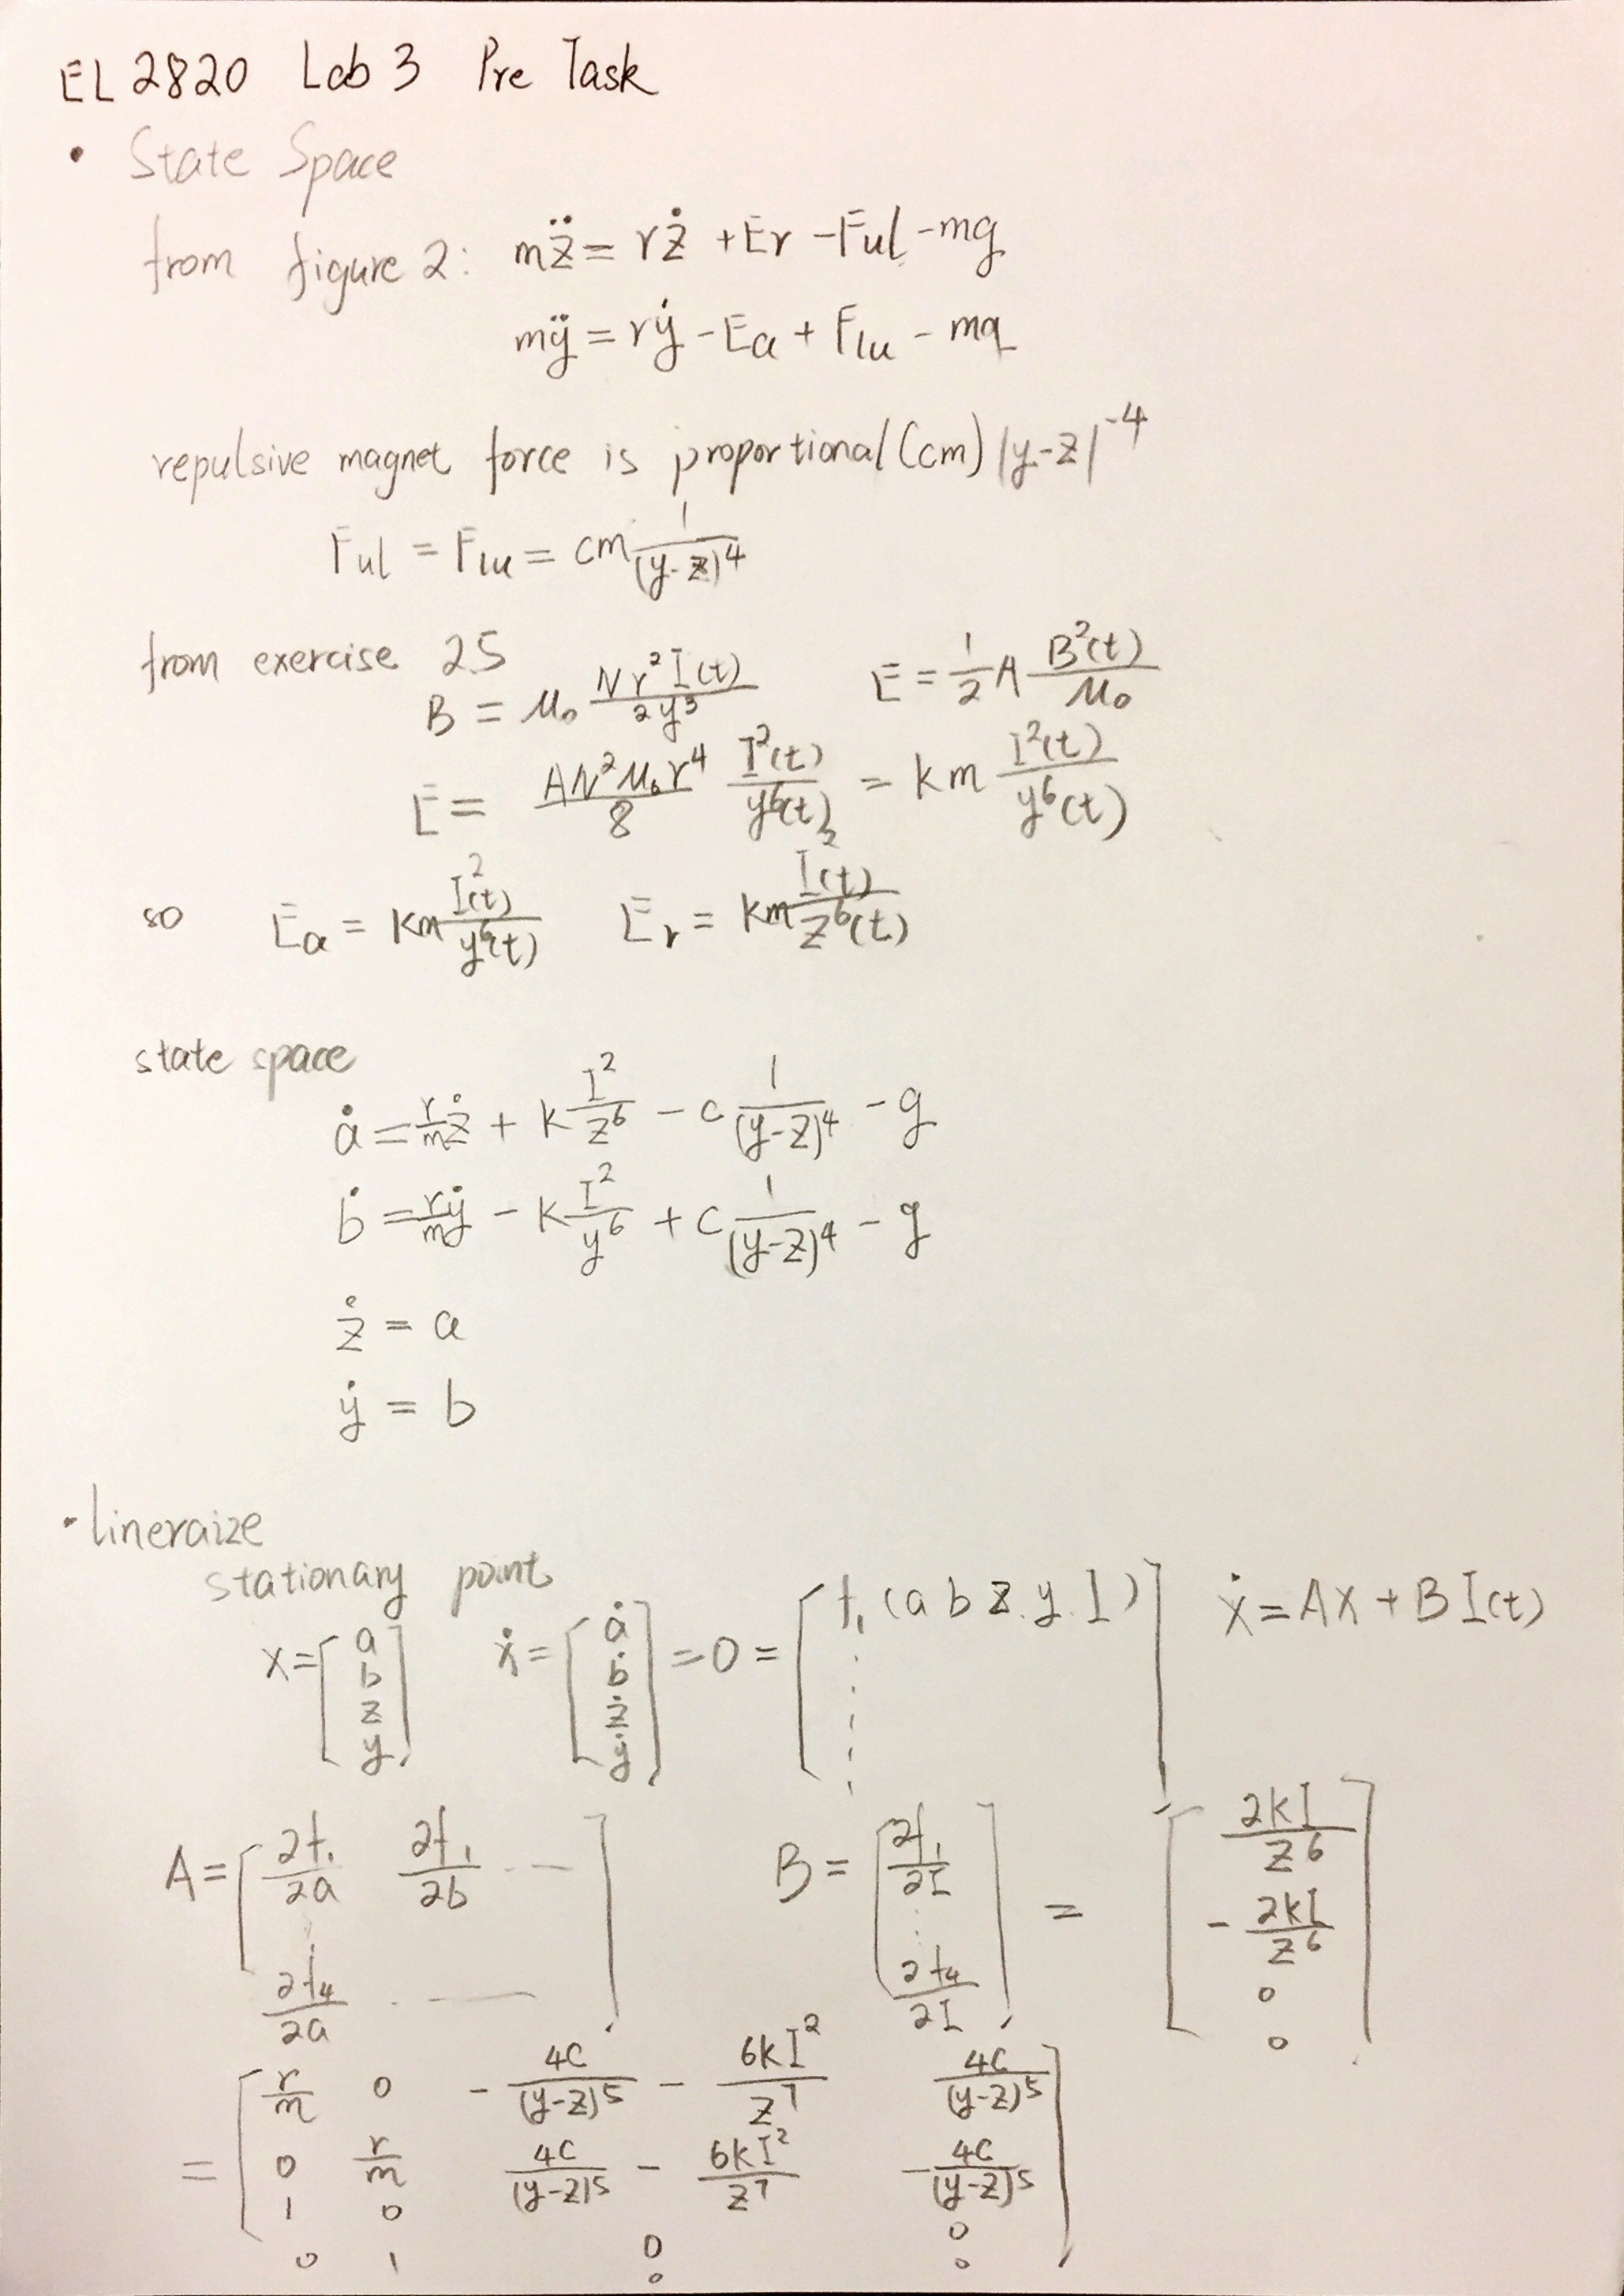 EL2820 Lab 3 Pre Task
• State Space
from figure 2: mz̈ = rż + Er - Ful - mg
mÿ = rẏ - Ea + Flu - mg
repulsive magnet force is proportional (cm) |y-z|⁻⁴
Ful = Flu = cm 1/(y-z)⁴
from exercise 25
B = μ₀ Nr²I(t)/2y³ E = 1/2 A B²(t)/μ₀
E = AN²μ₀r⁴/8 I²(t)/y⁶(t) = km I²(t)/y⁶(t)
so Ea = km I²(t)/y⁶(t) Er = km I²(t)/z⁶(t)
state space
ȧ = r/m ż + k I²/z⁶ - c 1/(y-z)⁴ - g
ḃ = r/m ẏ - k I²/y⁶ + c 1/(y-z)⁴ - g
ż = a
ẏ = b
• lineraize
stationary point
x = [a b z y] ẋ = [ȧ ḃ ż ẏ] = 0 = [f₁(a b z. y. I) ⋮] ẋ = Ax + BI(t)
A = [∂f₁/∂a ∂f₁/∂b ---; ⋮; ∂f₄/∂a ---] B = [∂f₁/∂I ⋮ ∂f₄/∂I] = [2kI/z⁶; -2kI/z⁶; 0; 0]
= [r/m 0 -4c/(y-z)⁵ - 6kI²/z⁷ 4c/(y-z)⁵
0 r/m 4c/(y-z)⁵ - 6kI²/z⁷ -4c/(y-z)⁵
1 0 0 0
0 1 0 0]